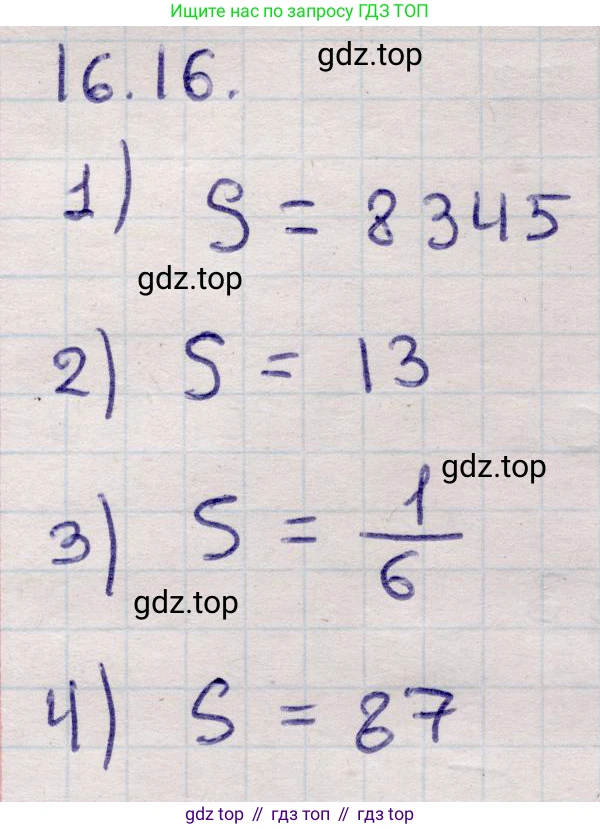 Ищите нас по запросу ГДЗ ТОП
16.16.
gdz.top
1) S = 8345
gdz.top
2) S = 13
gdz.top
3) S = 1/6
gdz.top
4) S = 87
gdz top // гдз топ // gdz.top